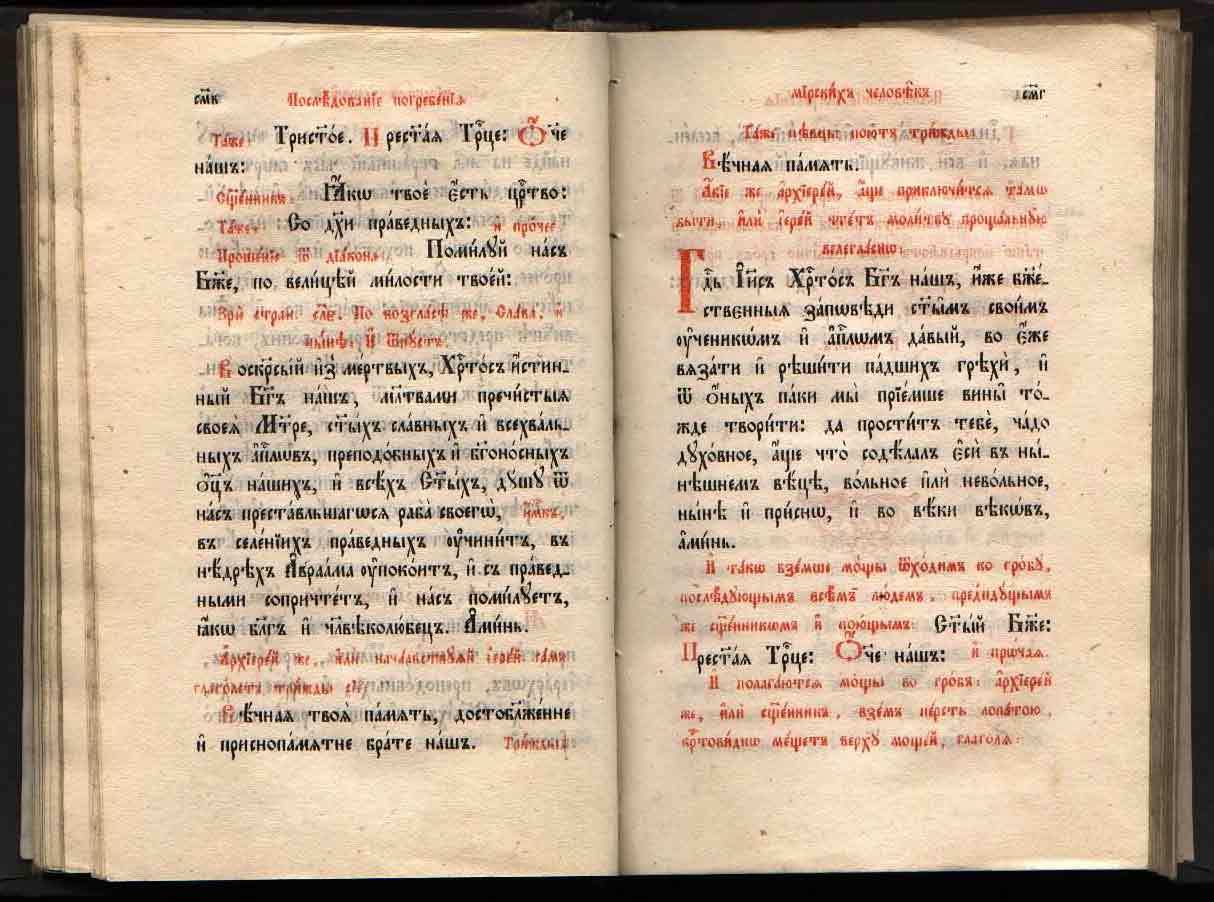 с҃мв
Послѣ́дованїе погребе́нїѧ
Та́же Трист҃о́е. Прест҃а́ѧ Тр҃це: Ѻ҆́ч҃е
на́шъ:
Сщ҃е́нникъ, Ꙗ҆́кѡ твоѐ є҆́сть цр҃тво:
Та́же: Со дꙋ́хи пра́ведныхъ: и҆ про́чее.
Проше́нїе ѿ дїа́кона: Поми́лꙋй на́съ
Бж҃е, по вели́цѣй ми́лости твое́й:
Зрѝ стран. По во́згласѣ же, Сла́ва, и҆
ны́нѣ: И҆ ѿпꙋ́стъ.
Воскр҃сы́й и҆з̾ ме́ртвыхъ, Хр҃то́съ и҆́стин_
ный Бг҃ъ на́шъ, мл҃твами пречи́стыѧ
своеѧ̀ Мт҃ре, ст҃ы́хъ сла́вныхъ и҆ всехва́ль_
ныхъ а҆п҃лѡвъ, преподо́бныхъ и҆ бг҃оно́сныхъ
ѻ҆ц҃ъ на́шихъ, и҆ всѣ́хъ Ст҃ы́хъ, дꙋ́шꙋ ѿ
на́съ преста́вльшагѡсѧ раба̀ своегѡ̀, и҆́м҃къ,
въ селе́нїихъ пра́ведныхъ ᲂу҆чини́тъ, въ
нѣ́дрѣхъ А҆враа́ма ᲂу҆поко́итъ, и҆ съ пра́вед_
ными сопричте́тъ, и҆ на́съ поми́лꙋетъ,
ꙗ҆́кѡ бл҃гъ и҆ чл҃вѣколю́бецъ. А҆ми́нь.
А҆рхїере́й же, и҆лѝ нача́лствꙋѧй і҆ере́й са́мъ
глаго́летъ три́жды
Вѣ́чнаѧ твоѧ̀ па́мѧть, достобл҃же́нне
и҆ приснопа́мѧтне бра́те на́шъ. Три́жды:
мїрски́хъ человѣ́къ
с҃мг
Та́же пѣвцы̀ пою́тъ три́жды:
Вѣ́чнаѧ па́мѧть.
А҆́бїе же а҆рхїере́й, а҆́ще приключи́тсѧ та́мѡ
бы́ти, и҆лѝ і҆ере́й чте́тъ моли́твꙋ проща́льнꙋю
велегла́снѡ:
Гд҃ь І҆и҃съ Хр҃то́съ Бг҃ъ на́шъ, и҆́же бж҃е́_
ственныѧ за́пѡвѣди ст҃ы̑мъ свои̑мъ
ᲂу҆ченикѡ́мъ и҆ а҆п҃лѡмъ да́вый, во є҆́же
вѧза́ти и҆ рѣши́ти па́дшихъ грѣхѝ, и҆
ѿ ѻ҆́ныхъ па́ки мы̀ прїе́мше вины̑ то́_
жде твори́ти: да прости́тъ тебѐ, ча́до
дꙋхо́вное, а҆́ще что̀ содѣ́лалъ є҆сѝ въ ны́_
нѣшнемъ вѣ́цѣ, во́льное и҆лѝ нево́льное,
ны́нѣ и҆ при́снѡ, и҆ во вѣ́ки вѣкѡ́въ,
а҆ми́нь.
И҆ та́кѡ взе́мше мо́щы ѿхо́димъ ко гро́бꙋ,
послѣ́дꙋющымъ всѣ̑мъ лю́демъ, предидꙋ́щымъ
же сщ҃е́нникѡмъ и҆ пою́щымъ: Ст҃ы́й Бж҃е:
Прест҃а́ѧ Тр҃це: Ѻ҆́ч҃е на́шъ: и҆ прѡ́чаѧ.
И҆ полага́ютсѧ мо́щы во гро́бъ: а҆рхїере́й
же, и҆лѝ сщ҃е́нникъ, взе́мъ пе́рсть лопа́тою,
кр҃тови́днѡ ме́щетъ верхꙋ̀ моще́й, глаго́лѧ: